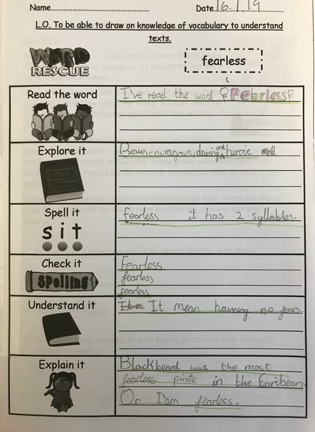 Name........................ Date 16.1.19
L.O. To be able to draw on knowledge of vocabulary to understand
texts.
WORD
RESCUE
fearless
Read the word
I've read the word Fearless
Explore it
Brave, courageous, daring, heroic
Spell it
sit
fearless it has 2 syllables.
Check it
Spelling
Fearless
fearless
fearless
Understand it
It mean having no fears
Explain it
Blackbeard was the most
fearless pirate in the Caribean
Or I'am fearless.